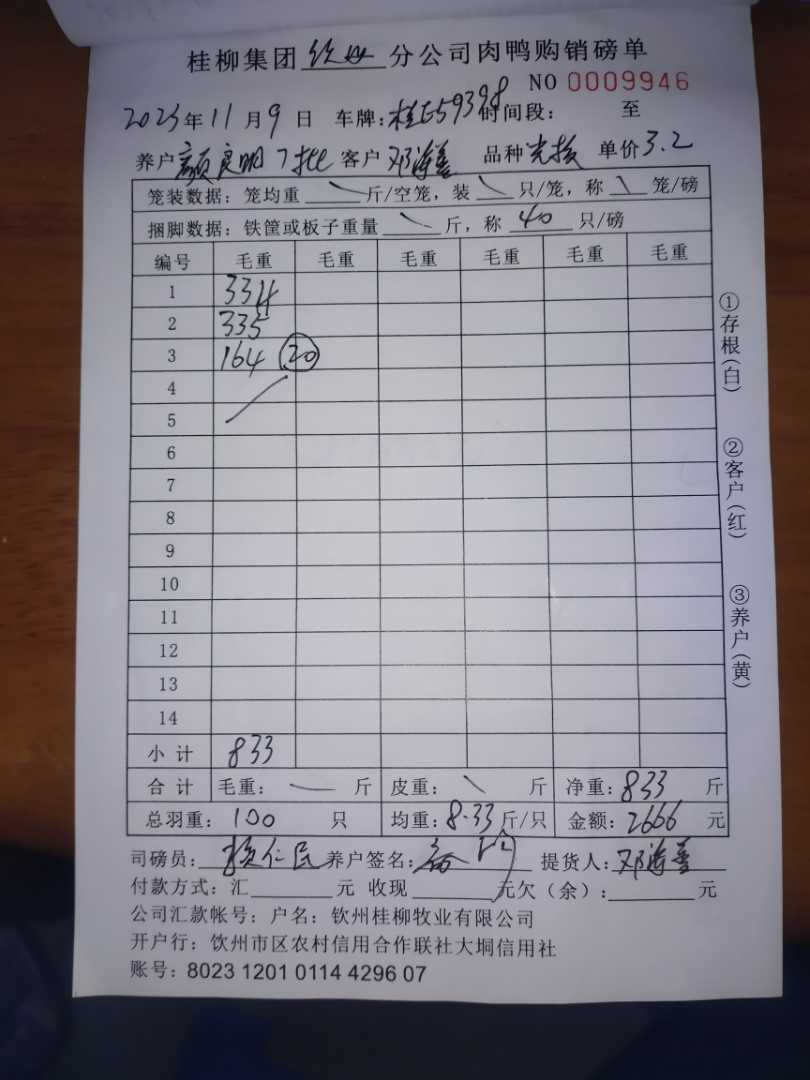 桂柳集团钦州分公司肉鸭购销磅单
NO 0009946
2023年11月9日 车牌：桂E59398 时间段： 至
养户 颜良明 7批 客户 邓海善 品种 单价3.2
笼装数据：笼均重 斤/空笼，装 只/笼，称 笼/磅
捆脚数据：铁筐或板子重量 斤，称 40 只/磅
编号 毛重 毛重 毛重 毛重 毛重 毛重
1 334
2 335
3 164 20
4
5
6
7
8
9
10
11
12
13
14
小计 833
合计 毛重： 斤 皮重： 斤 净重：833 斤
总羽重：100 只 均重：8.33斤/只 金额：2666 元
司磅员： 仁民 养户签名： 提货人：邓海善
付款方式：汇 元 收现 元欠（余）： 元
公司汇款帐号；户名：钦州桂柳牧业有限公司
开户行：饮州市区农村信用合作联社大垌信用社
账号：8023 1201 0114 4296 07
①存根（白）
②客户（红）
③养户（黄）